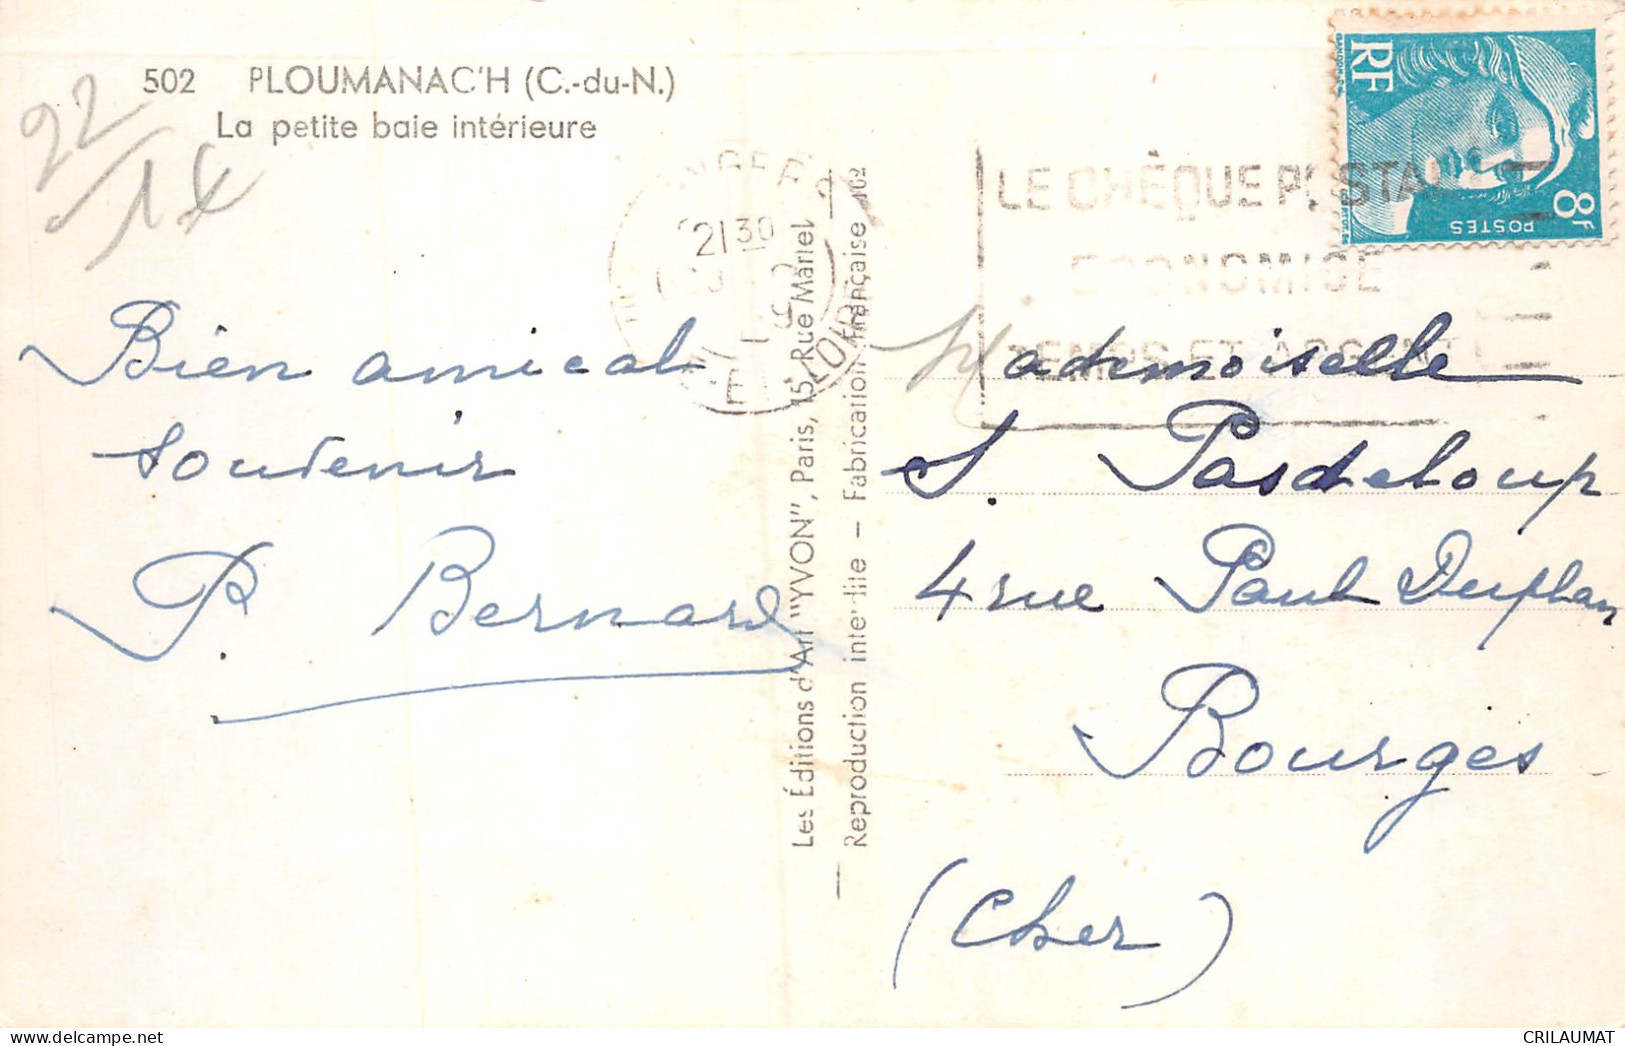 502 PLOUMANAC'H (C.-du-N.)
La petite baie intérieure
22
1€
Bien amical
souvenir
P. Bernard
21 30
Les Éditions d'Art "YVON", Paris, 15, Rue Martel
Reproduction interdite — Fabrication Française
RF
POSTES
8F
LE CHÈQUE POSTAL
ECONOMISE
TEMPS ET ARGENT
Mademoiselle
S. Pasdeloup
4 rue Paul Duplan
Bourges
(Cher)
www.delcampe.net
CRILAUMAT